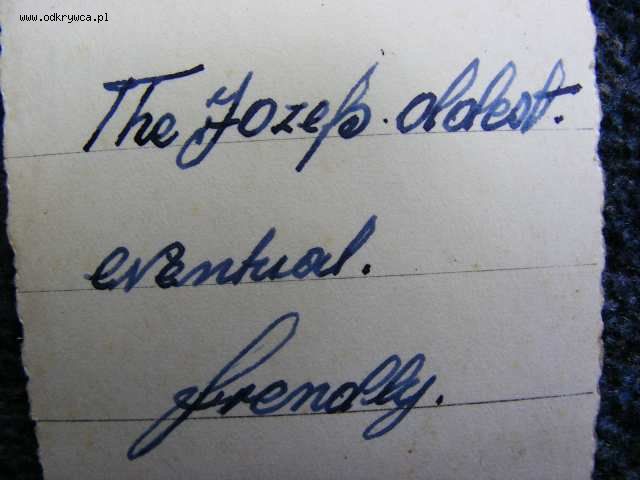 www.odkrywca.pl
The Jozefs. oldest.
eventual.
frendly.